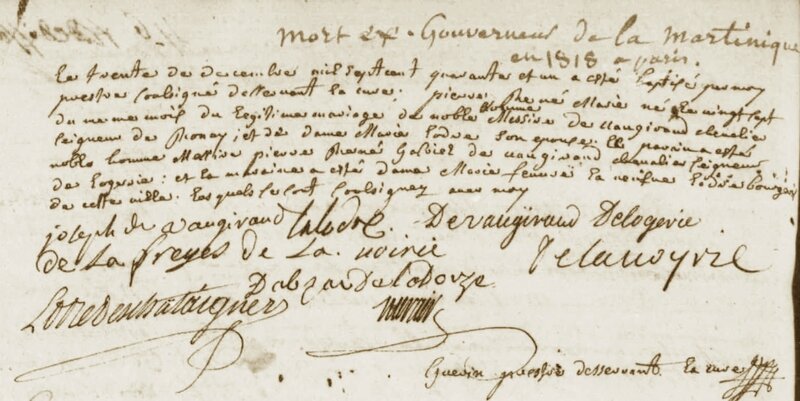 Mort ex-Gouverneur de la Martinique
en 1818 a paris.
Le trente de decembre mil sept cent quarante et un a esté baptisé par moy
prestre soussigné desservant la cure: pierre René Marie né le vingt sept
du meme mois du legitime mariage de noble homme Messire de vaugiraud chevalier
seigneur de Rosnay; et de dame Marie Lodre son epouse. le parain a esté
noble homme Messire pierre René Gabriel de vaugiraud chevalier seigneur
de logerie: et la maraine a estés dame Marie
de cette ville: lesquels se sont soussignez avec moy
joseph de vaugiraud Lalodre Devaugiraud Delogerie
de la de la noirie Delanoyrie
Dabzac De ladouze
Guerin prestre desservant la cure